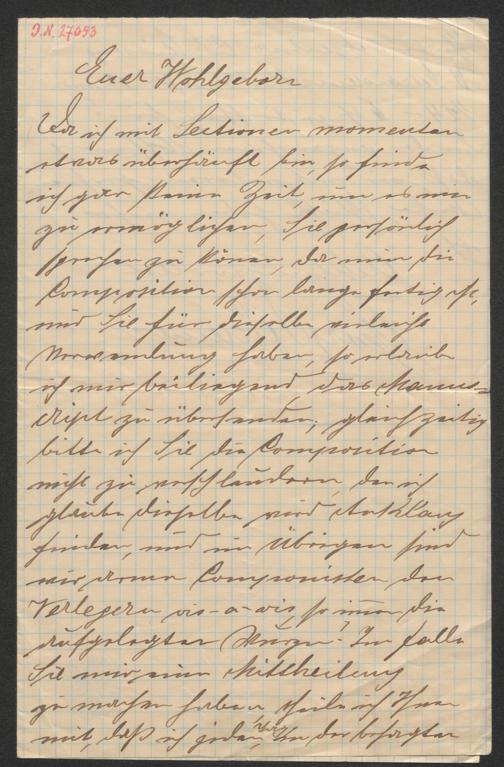 I.N. 27053
Euer Wohlgeborn
Da ich mit Lectionen momentan
etwas überhäuft bin, so finde
ich gar keine Zeit, um es mir
zu ermöglichen, Sie persönlich
sprechen zu könen, da nun die
Composition schon lange fertig ist,
und Sie für dieselbe vieleicht
Verwendung haben, so erlaube
ich mir beiliegend, das Manus=
cript zu übersenden; gleichzeitig
bitte ich Sie die Composition
nicht zu verschleudern, den ich
glaube dieselbe wird Anklang
finden, und im Übrigen sind
wir armen Componisten den
Verlegern vis-a-vis, so imer die
aufgelegten Wurzn! Im falle
Sie mir eine Mittheilung
zu machen haben theile ich Ihnen
mit, daß ich jeden in der besagten